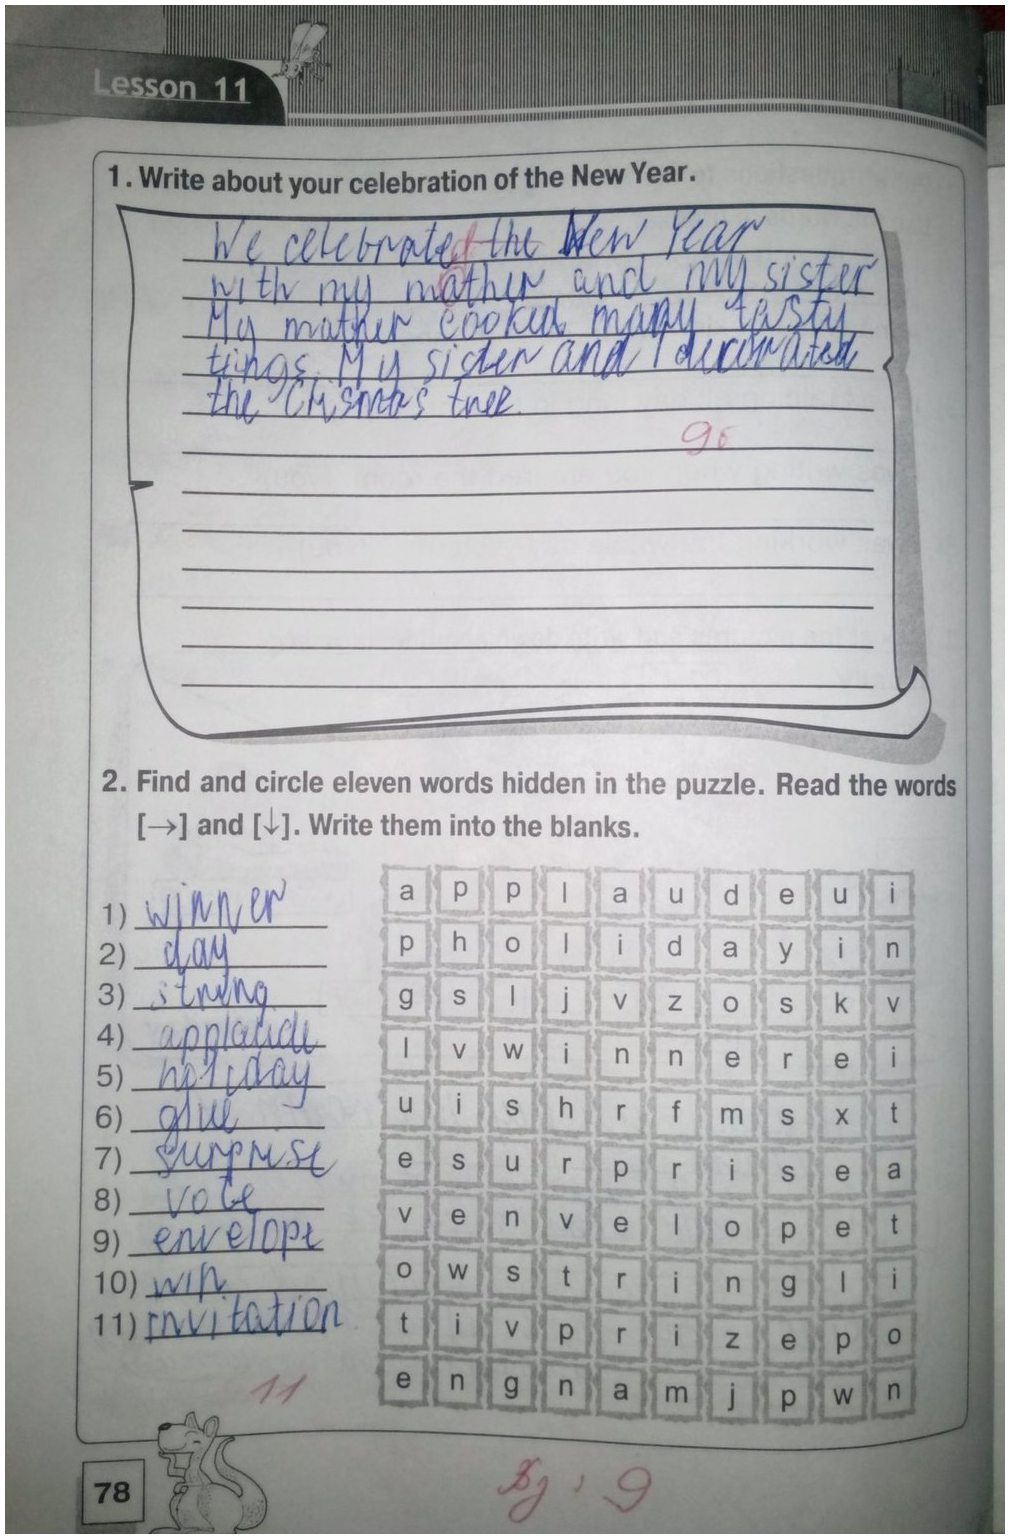 Lesson 11
1. Write about your celebration of the New Year.
We celebrated the New Year
with my mother and my sister
My mather cooked many tasty
tings. My sister and I decorated
the Crismas tree.
2. Find and circle eleven words hidden in the puzzle. Read the words
[→] and [↓]. Write them into the blanks.
1) winner
2) day
3) string
4) applaude
5) holiday
6) glue
7) surprise
8) vote
9) envelope
10) win
11) invitation
a p p l a u d e u i
p h o l i d a y i n
g s l j v z o s k v
l v w i n n e r e i
u i s h r f m s x t
e s u r p r i s e a
v e n v e l o p e t
o w s t r i n g l i
t i v p r i z e p o
e n g n a m j p w n
11
78
9